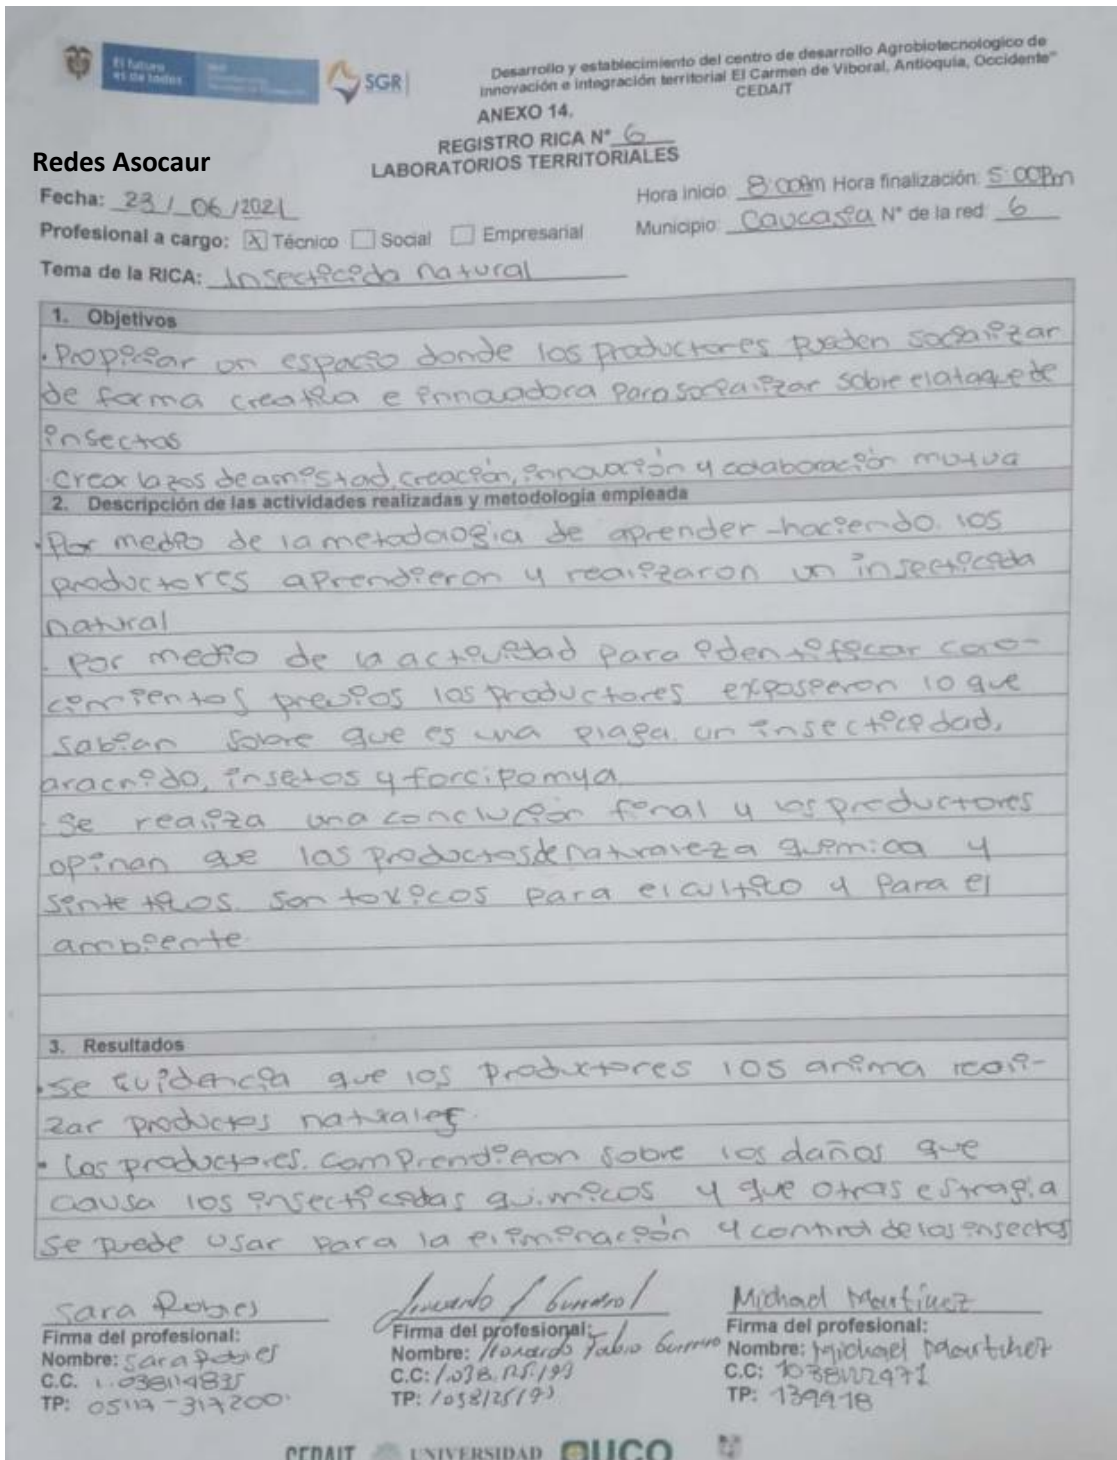 El futuro es de todos
SGR
Desarrollo y establecimiento del centro de desarrollo Agrobiotecnologico de
innovación e integración territorial El Carmen de Viboral, Antioquia, Occidente"
CEDAIT
ANEXO 14.
REGISTRO RICA N° 6
LABORATORIOS TERRITORIALES
Redes Asocaur
Fecha: 23/06/2021
Hora inicio: 8:00Am Hora finalización: 5:00Pm
Profesional a cargo: [X] Técnico [ ] Social [ ] Empresarial
Municipio: Caucasia N° de la red: 6
Tema de la RICA: Insecticida natural
1. Objetivos
. Propiciar un espacio donde los productores pueden socializar
de forma creatia e innovadora para socializar sobre el ataque de
insectos
. Crear lazos de amistad, creación, innovación y colaboración mutua
2. Descripción de las actividades realizadas y metodología empleada
. Por medio de la metodologia de aprender-haciendo. los
productores aprendieron y realizaron un insecticida
natural
. Por medio de la actividad para identificar cono-
cimientos previos los productores expusieron lo que
sabian sobre que es una plaga, un insecticedad,
aracnido, insetos y forcipomya
. Se realiza una conclusión final y los productores
opinan que los productos de naturaleza quimica y
sinteticos. son toxicos para el cultivo y para el
ambiente.
3. Resultados
. Se evidencia que los productores los anima reali-
zar productos naturales.
. Los productores. comprendieron sobre los daños que
causa los insecticidas quimicos y que otras estragia
se puede usar para la eliminación y control de los insectos
Sara Robles
Michael Martinez
Firma del profesional:
Nombre: Sara Robles
C.C. 1.038114835
TP: 05117-317200
Firma del profesional:
Nombre: Leonardo Fabio Guerrero
C.C: 1.038.125.193
TP: 1038125193
Firma del profesional:
Nombre: Michael Martinez
C.C: 1038122971
TP: 139918
CEDAIT UNIVERSIDAD UCO